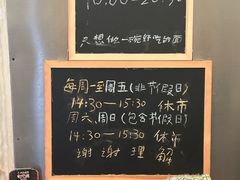 10:00-20:30
只想做一碗好吃的面
每周一至周五(非节假日)
14:30—15:30 休市
周六、周日(包含节假日)
14:30—15:30 休市
谢谢理解